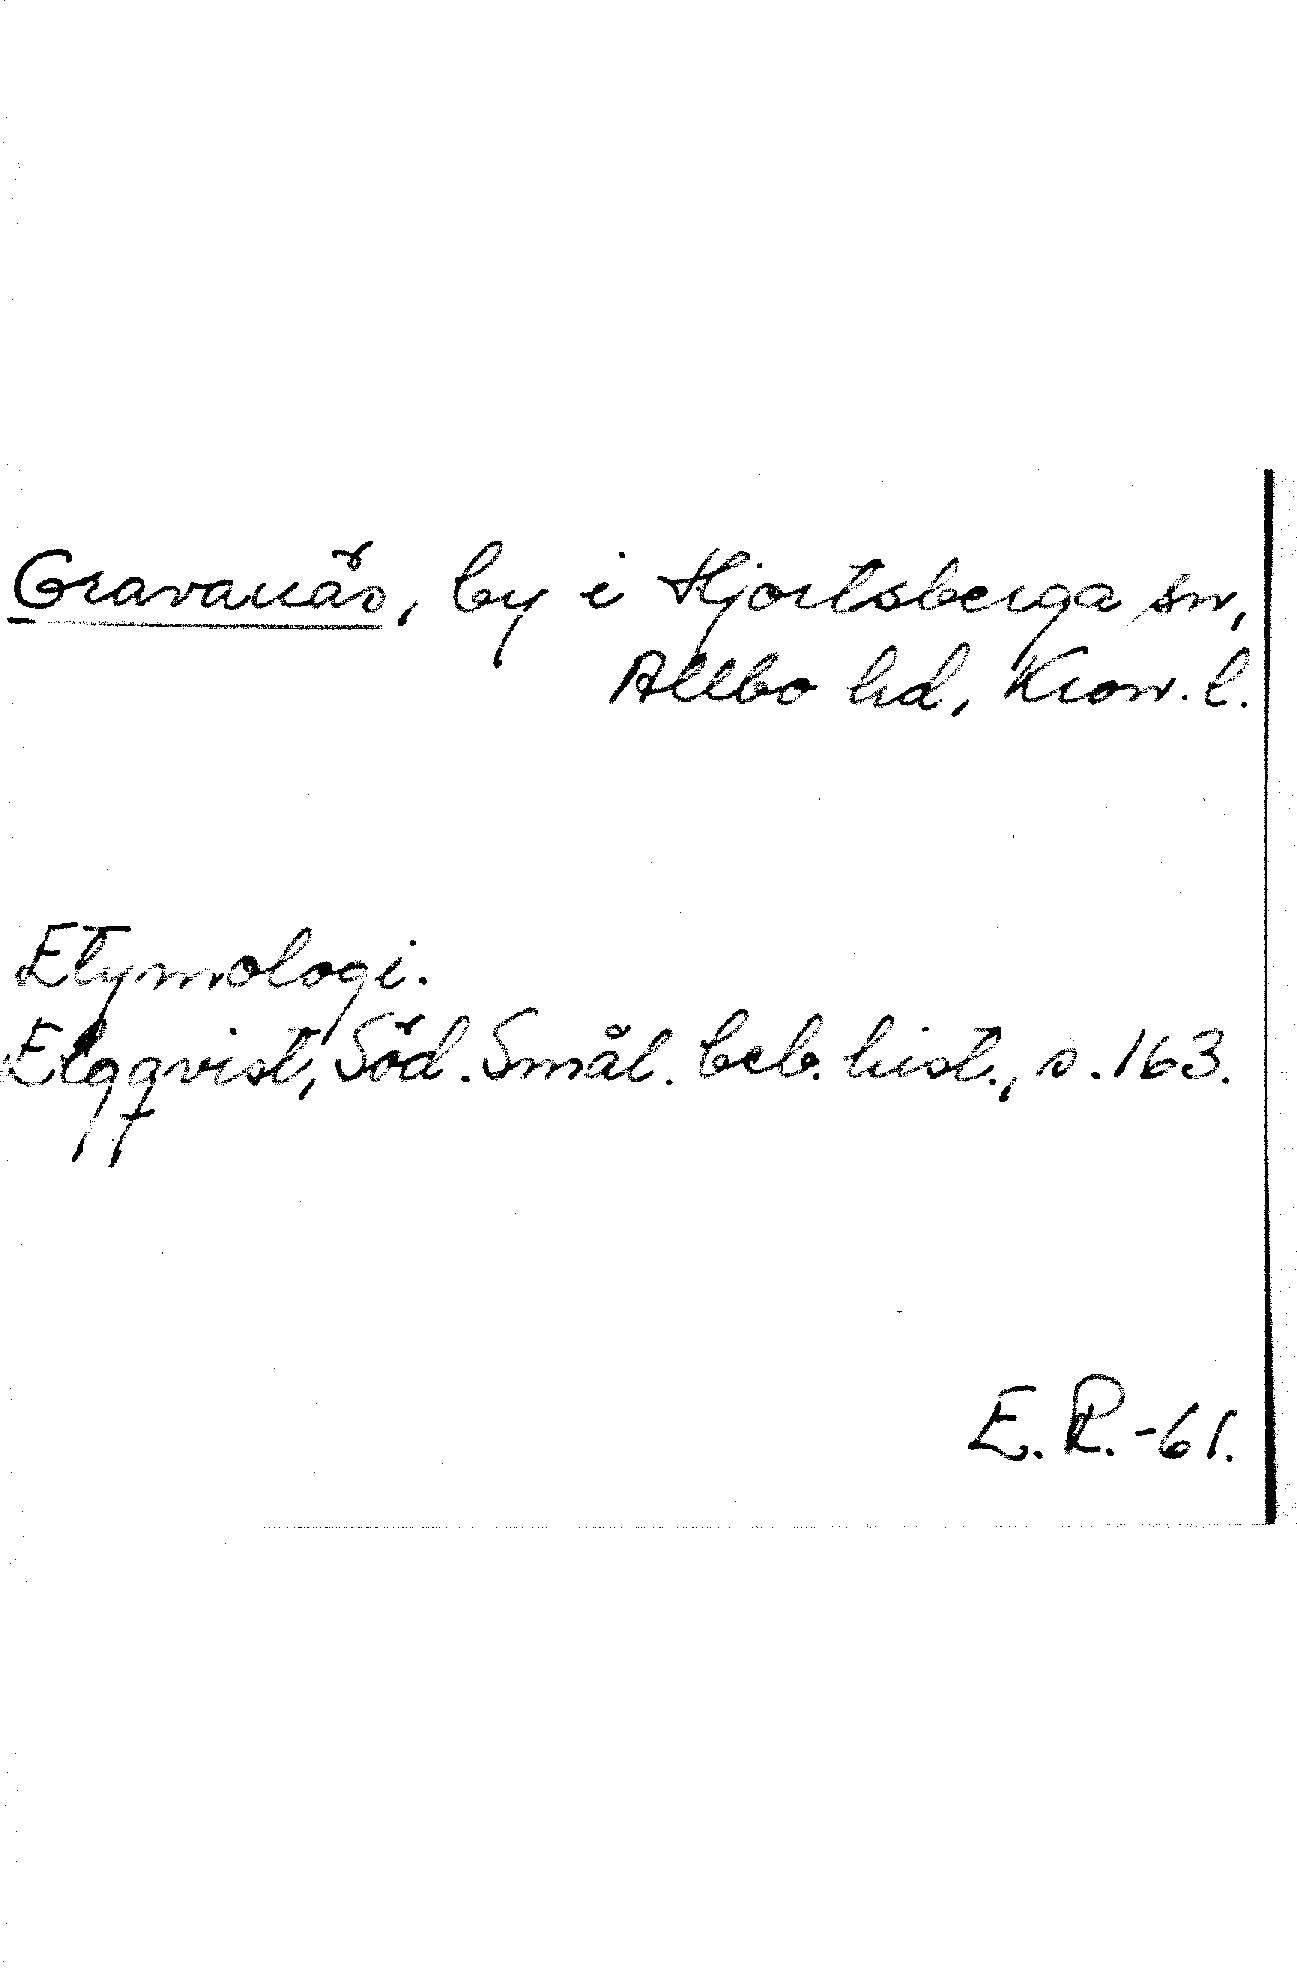 Gravanäs, by i Hjortsberga sn,
Allbo hd, Kron. l.
Etymologi.
Elgqvist, Söd. Smål. beb. hist., s. 163.
E. R. -61.